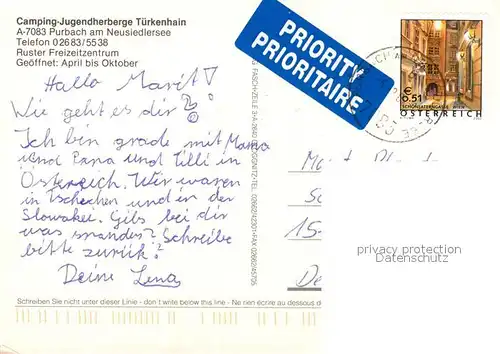 Camping-Jugendherberge Türkenhain
A-7083 Purbach am Neusiedlersee
Telefon 02683/5538
Ruster Freizeitzentrum
Geöffnet: April bis Oktober
PRIORITY
PRIORITAIRE
€ 6.51
SCHÖNLATERNGASSE, WIEN
ÖSTERREICH
Hallo Marit!
Wie geht es dir?
Ich bin grade mit Mama
und Papa und Lilli in
Österreich. Wir waren
in Tschechen und in der
Slowakei. Gibs bei dir
was neues? Schreibe
bitte zurück!
Deine Lena
15-
privacy protection
Datenschutz
Schreiben Sie nicht unter dieser Linie - don't write below this line - Ne rien écrire au dessous